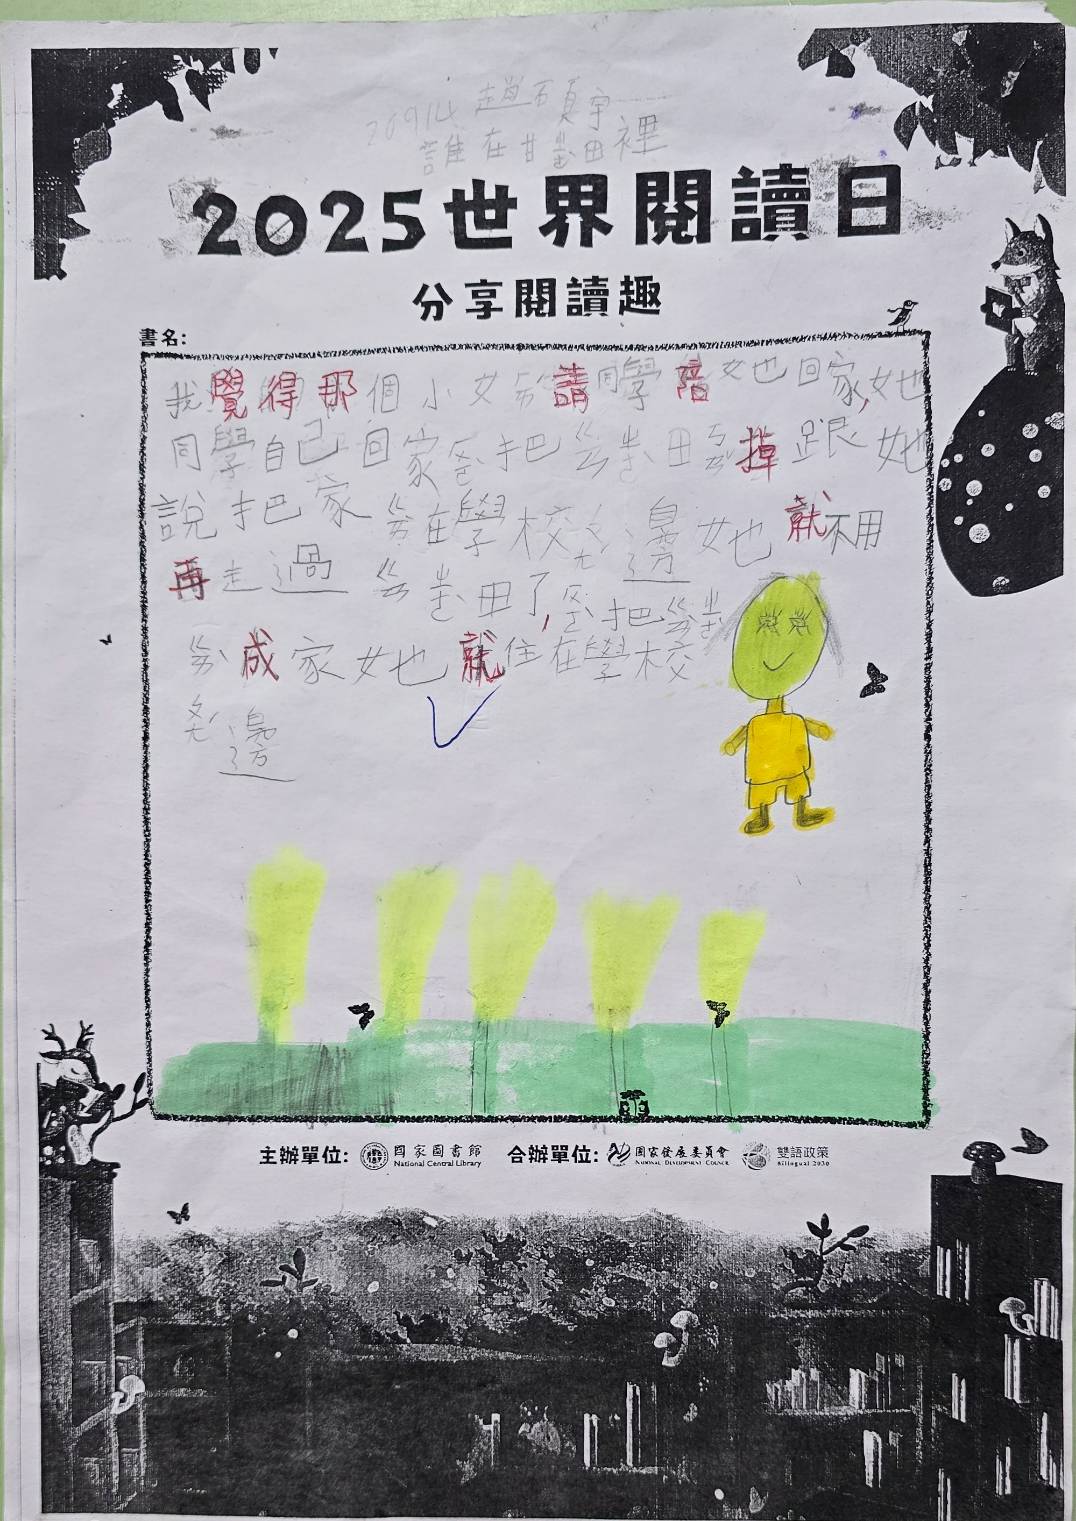 20914 趙
誰在甘蔗田裡
2025世界閱讀日
分享閱讀趣
書名:
我覺得那個小女ㄞˊ請同學陪她回家,她
同學自己回家 把ㄍㄢ蔗田 掉跟她
說把家 在學校ㄆㄤˊ邊她就不用
再走過ㄍㄢ蔗田了, 把ㄍㄢ蔗
成家她就住在學校
ㄆㄤˊ邊
主辦單位: 國家圖書館 National Central Library 合辦單位: 國家發展委員會 NATIONAL DEVELOPMENT COUNCIL 雙語政策 Bilingual 2030